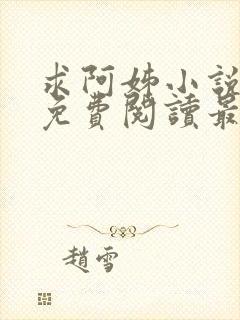 求阿姊小說
免費閱讀最
趙雪